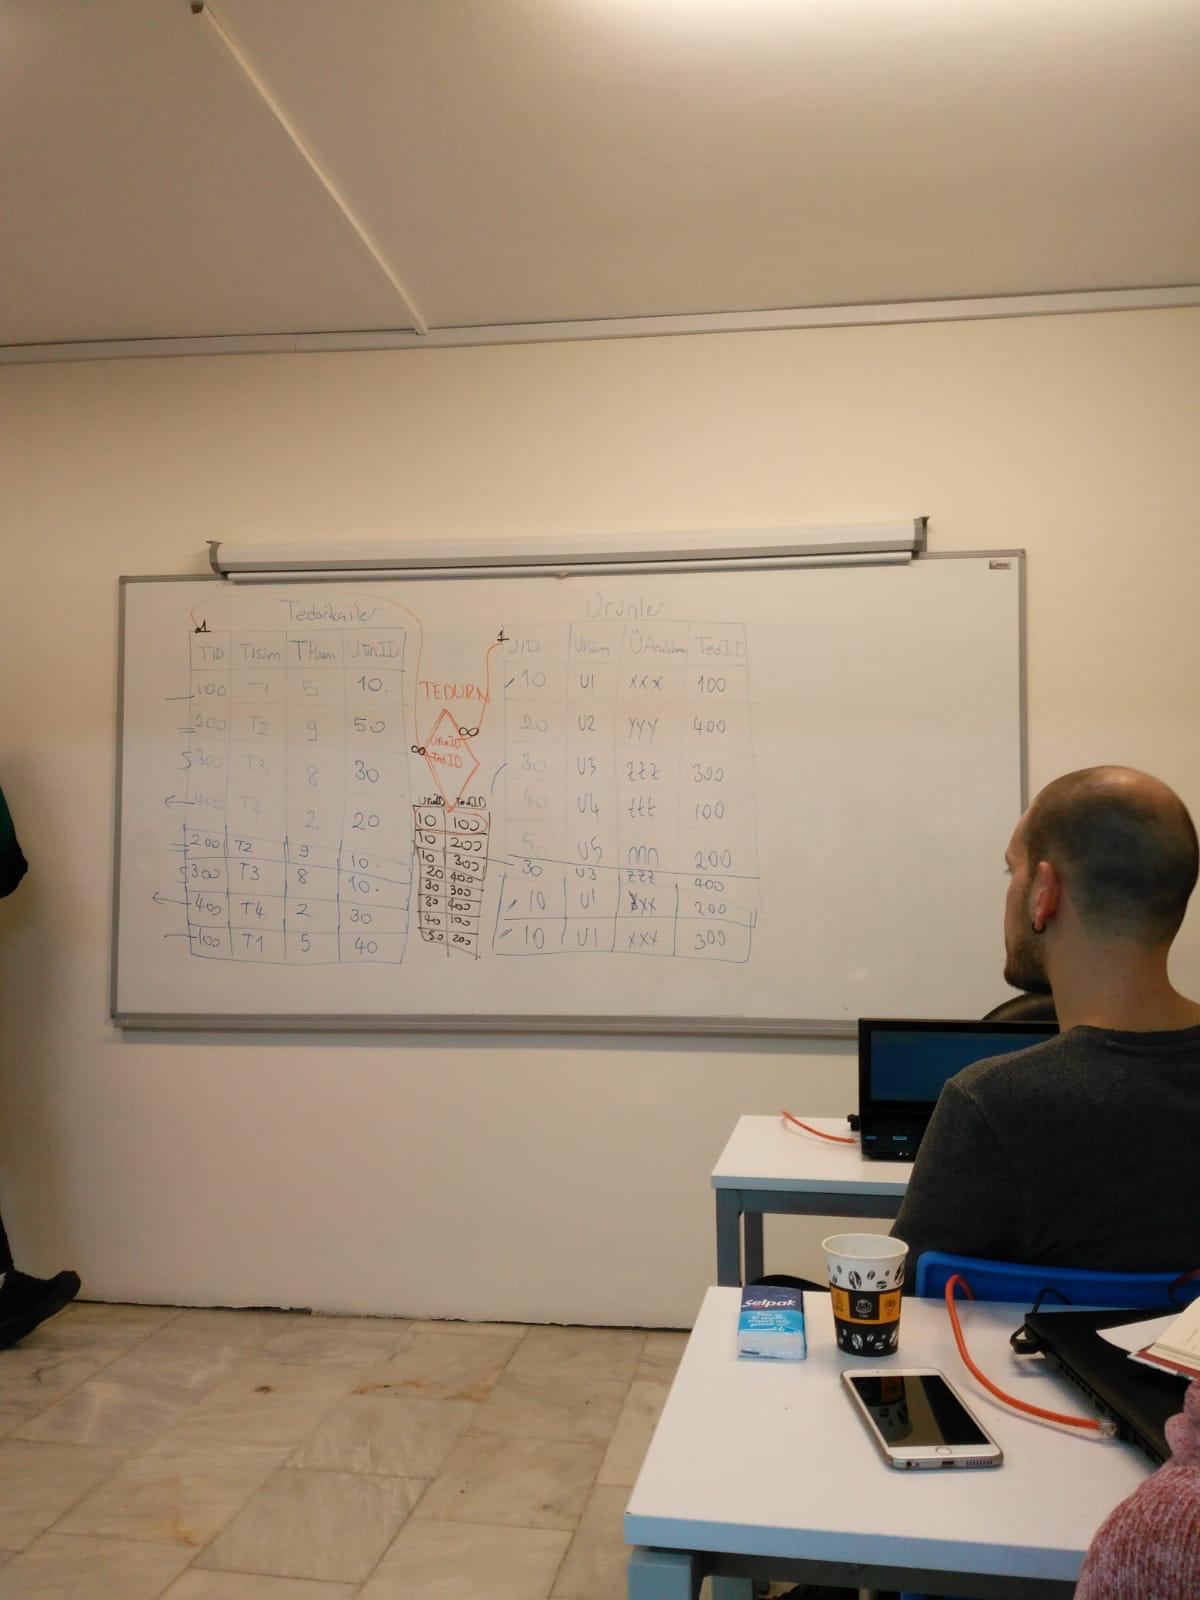 Tedarikçiler
TID Tİsim TPuanı ÜrünID
100 T1 5 10
200 T2 9 50
300 T3 8 30
400 T4 2 20
200 T2 9 10
300 T3 8 10
400 T4 2 30
100 T1 5 40
1
TEDURN
∞
∞
ÜrünID
TedID
ÜrünID TedID
10 100
10 200
10 300
20 400
30 300
30 400
40 100
50 200
1
Ürünler
ÜID Üİsim ÜAçıklama TedID
10 U1 xxx 100
20 U2 yyy 400
30 U3 zzz 300
40 U4 ttt 100
50 U5 nnn 200
30 U3 zzz 400
10 U1 xxx 200
10 U1 xxx 300
Selpak